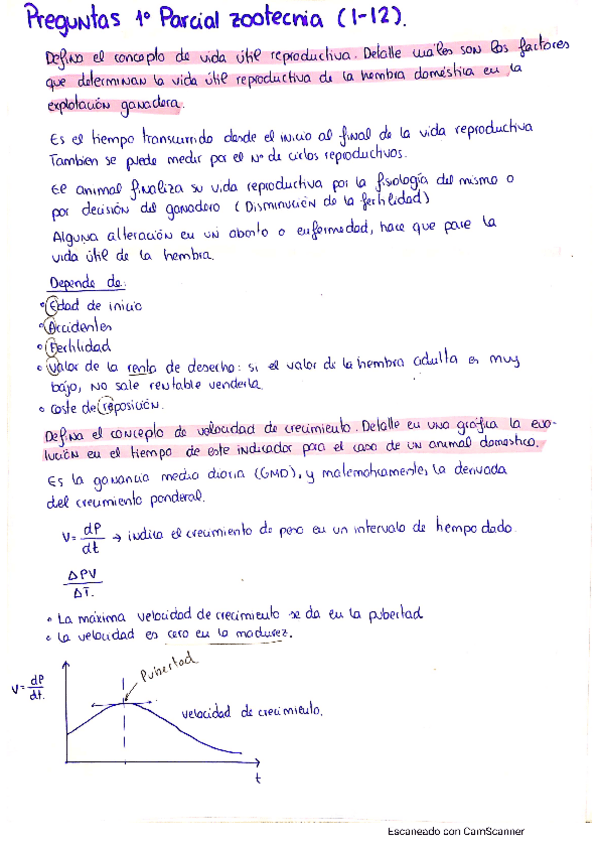 Preguntas 1º Parcial zootecnia (1-12).
Defina el concepto de vida útil reproductiva. Detalle cuáles son los factores
que determinan la vida útil reproductiva de la hembra doméstica en la
explotación ganadera.
Es el tiempo transcurrido desde el inicio al final de la vida reproductiva
Tambien se puede medir por el Nº de ciclos reproductivos.
El animal finaliza su vida reproductiva por la fisiología del mismo o
por decisión del ganadero (Disminución de la fertilidad)
Alguna alteración en un aborto o enfermedad, hace que pare la
vida útil de la hembra.
Depende de:
• Edad de inicio
• Accidentes
• Fertilidad
• Valor de la renta de desecho: si el valor de la hembra adulta es muy
bajo, no sale rentable venderla.
• Coste de reposición.
Defina el concepto de velocidad de crecimiento. Detalle en una gráfica la evo-
lución en el tiempo de este indicador para el caso de un animal domestico.
Es la ganancia media diaria (GMD), y matemáticamente, la derivada
del crecimiento ponderal.
V= dP/dt → indica el crecimiento de peso en un intervalo de tiempo dado.
ΔPV/ΔT.
• La máxima velocidad de crecimiento se da en la pubertad
• La velocidad es cero en la madurez.
Pubertad
V= dP/dt.
velocidad de crecimiento.
t
Escaneado con CamScanner